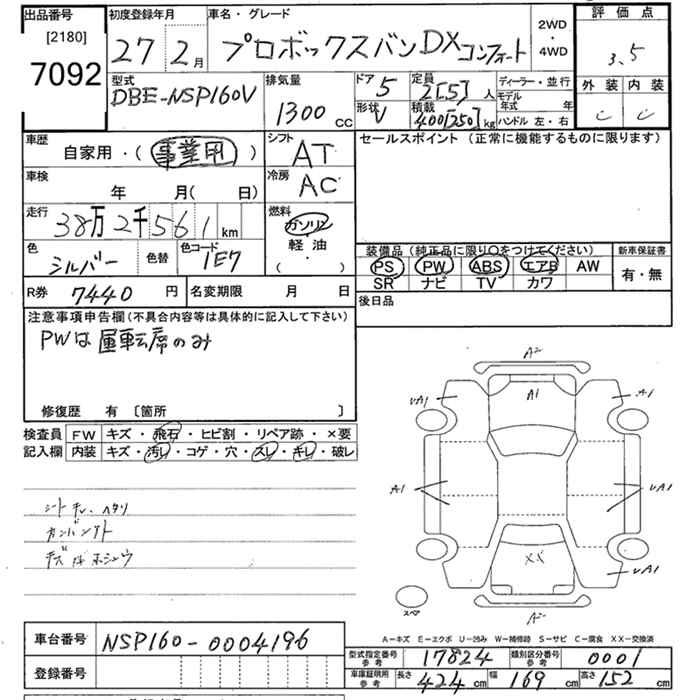 出品番号
[2180]
7092
初度登録年月
27 2月
車名・グレード
プロボックスバン DX コンフォート
2WD
・
4WD
評価点
3.5
外装 内装
C C
型式
DBE-NSP160V
排気量
1300 CC
ドア 5
形状 V
定員 2[5] 人
積載 400[250] kg
ディーラー・並行
モデル年式 年
ハンドル 左・右
車歴
自家用・(事業用)
車検
年 月( 日)
走行
38万2千561 km
色 シルバー
色替
色コード 1E7
シフト AT
冷房 AC
燃料
ガソリン
軽油
( )
セールスポイント (正常に機能するものに限ります)
装備品 (純正品に限り○をつけてください)
PS PW ABS エアB AW
SR ナビ TV カワ
新車保証書
有・無
R券 7440 円
名変期限 月 日
後日品
注意事項申告欄(不具合内容等は具体的に記入して下さい)
PWは運転席のみ
修復歴 有 〔箇所 〕
検査員 FW キズ・飛石・ヒビ割・リペア跡・×要
記入欄 内装 キズ・汚レ・コゲ・穴・スレ・キレ・破レ
シートキレ・ヘタリ
カンバンケト
キズ
ホシュウ
A2
UA1 A1 A1
A1 UA1
XX UA1
A2
スペア
A-キズ E-エクボ U-凹み W-補修跡 S-サビ C-腐食 XX-交換済
車台番号 NSP160-0004196
登録番号
型式指定番号 参考 17824
類別区分番号 参考 0001
車庫証明用 参考 長さ 424 cm 幅 169 cm 高さ 152 cm